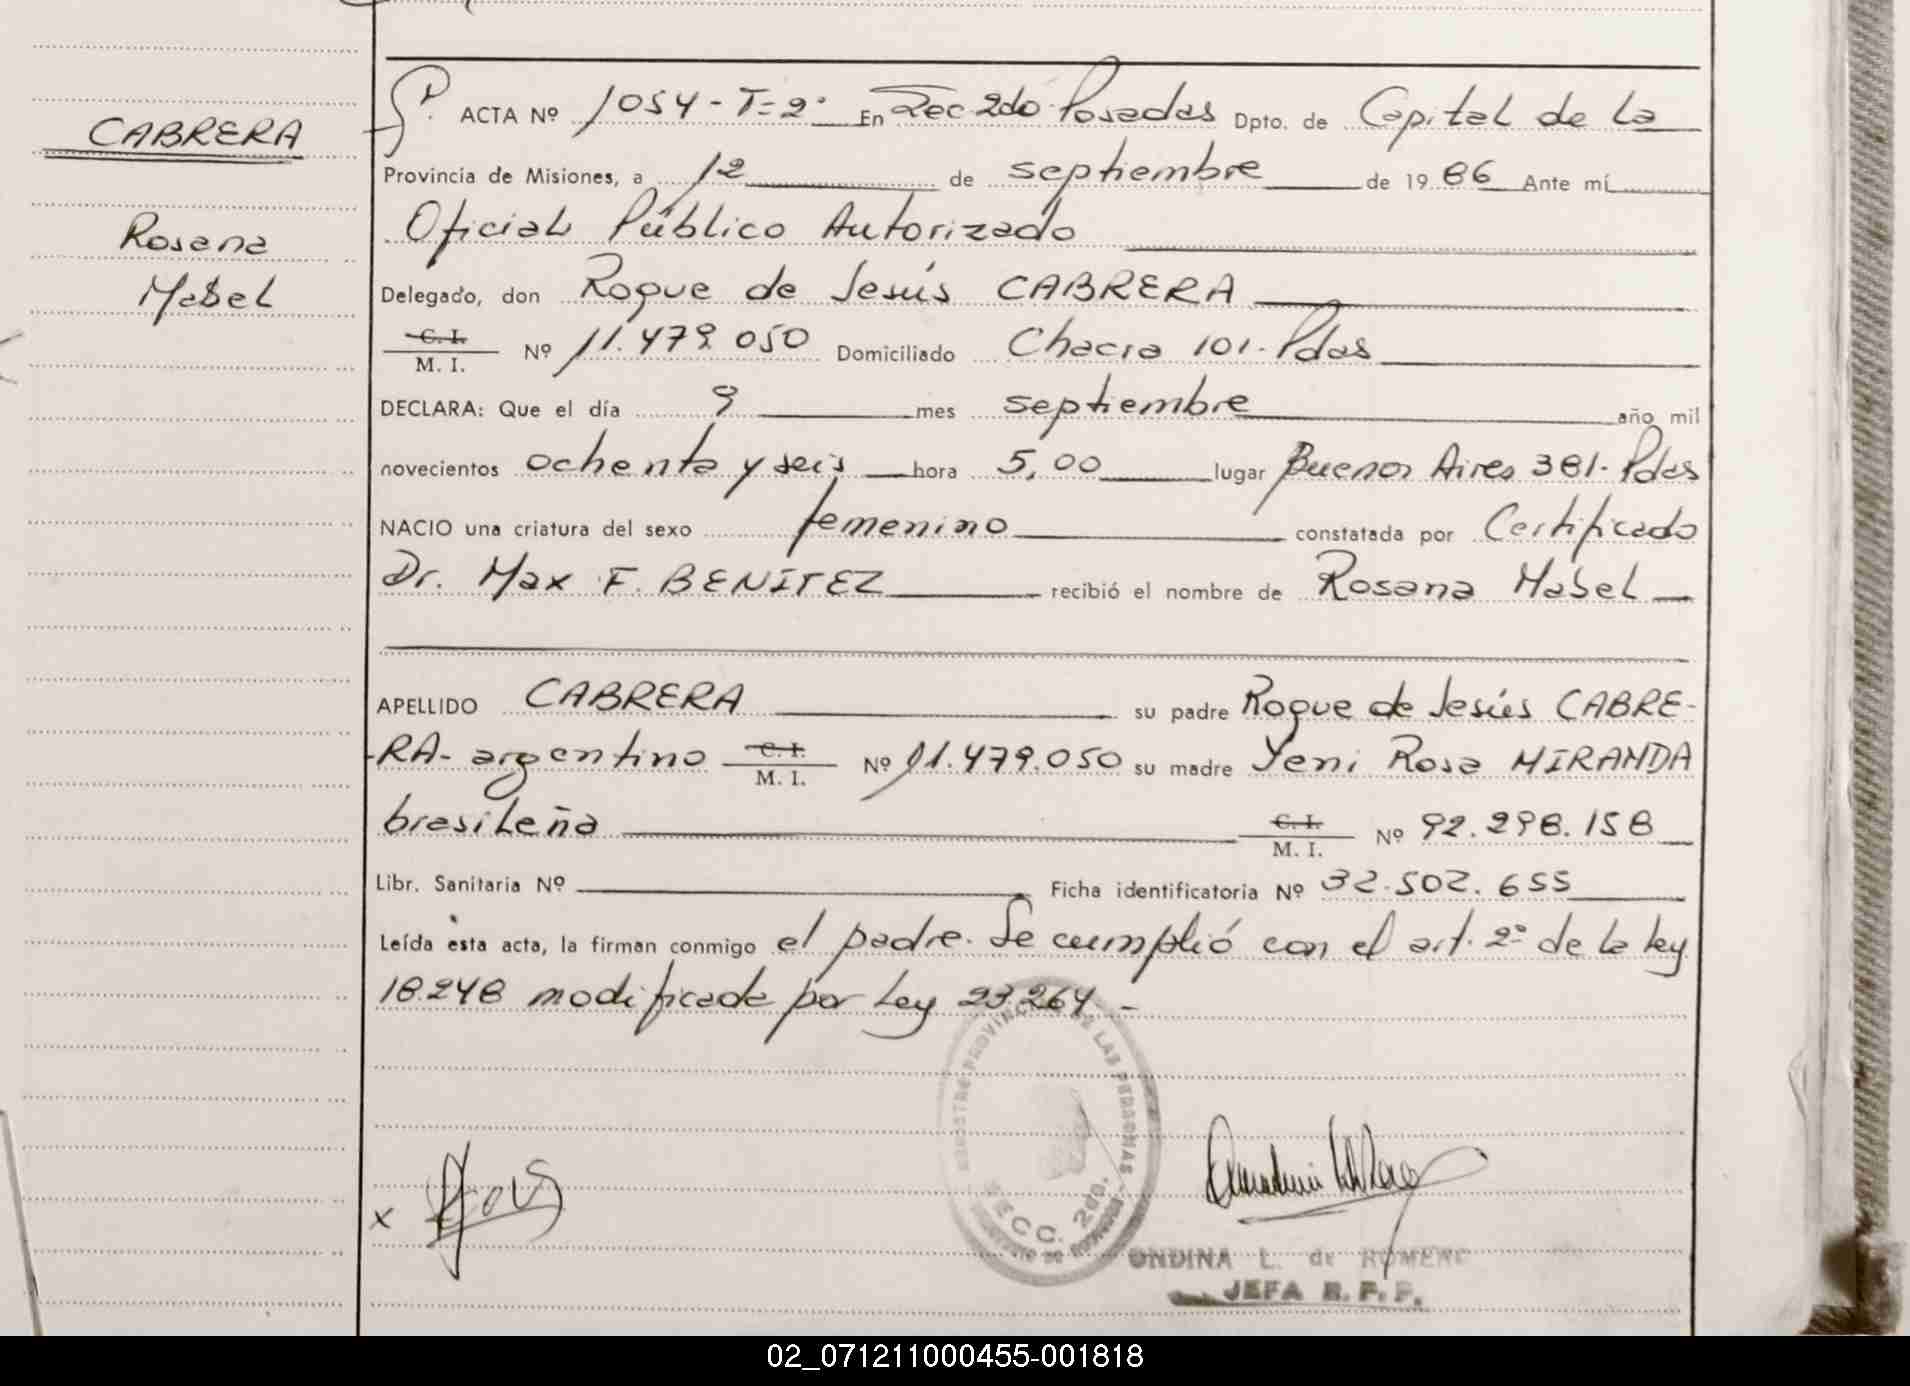 CABRERA
Rosana
Mabel
ACTA Nº 1054 - T=2º En Secc 2do Posadas Dpto. de Capital de la
Provincia de Misiones, a 12 de septiembre de 1986 Ante mí
Oficial Público Autorizado
Delegado, don Roque de Jesús CABRERA
C. I.
M. I. Nº 11.479.050 Domiciliado Chacra 101. Pdas
DECLARA: Que el día 9 mes septiembre año mil
novecientos ochenta y seis hora 5,00 lugar Buenos Aires 381. Pdas
NACIO una criatura del sexo femenino constatada por Certificado
Dr. Max F. BENITEZ recibió el nombre de Rosana Mabel
APELLIDO CABRERA su padre Roque de Jesús CABRE-
-RA- argentino C. I. M. I. Nº 11.479.050 su madre Yeni Rosa MIRANDA
brasileña C. I. M. I. Nº 92.298.158
Libr. Sanitaria Nº Ficha identificatoria Nº 32.502.655
Leída esta acta, la firman conmigo el padre. Se cumplió con el art. 2º de la ley
18.248 modificada por Ley 23.264. -
REGISTRO PROVINCIAL DE LAS PERSONAS
SECC. 2do.
x
ONDINA L. de ROMERO
JEFA R. P. P.
02_071211000455-001818